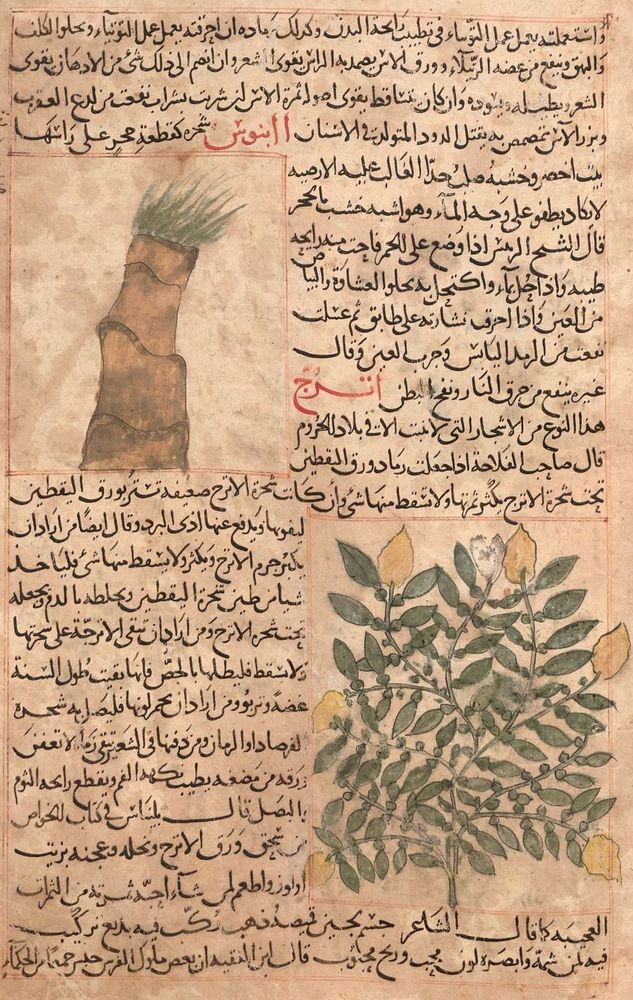 واستعملته يعمل عمل التوتياء فى تطييب رايحة البدن وكذلك رماده ان احرقته يعمل عمل التوتياء ويجلوا الكلف
والبهق وينفع من عضه الرتيلاء وورق الاس يضمد به الراس يقوى الشعر وان انضم الى ذلك شئ من الادهان يقوى
الشعر ويطيله ويسوده وان كان يتساقط يقوى اصوله ثمرة الاس ان شربت بشراب نفعت من لدغ العقرب
وبزر الاس يتمضمض به يقتل الدود المتولدة فى الاسنان ابنوس شجره كقطعة محجر على راسها
بيت اخضر وخشبه صلب جدا الغالب عليه الارضيه
لا يكاد يطفو على وجه الماء وهو اشبه خشب بالحجر
قال الشيخ الرئيس اذا وضع على الجمر فاحت منه رايحه
طيبه واذا حل بماء واكتحل به يجلوا الغشاوة والبياض
من العين واذا احرق نشارته على طابق ثم غسلت
نفعت من الرمد اليابس وجرب العين وقال
غيره ينفع من حرق النار ونفخ البطن اترج
هذا النوع من الاشجار التى لا تنبت الا فى بلاد الحروم
قال صاحب الفلاحة اذا جعلت رماد ورق اليقطين
تحت شجرة الاترج يكثر ثمرتها ولا يسقط منها شئ وان كانت شجرة الاترج ضعيفه تستر بورق اليقطين
ليقويها ويدفع عنها اذى البرد وقال ايضا من اراد ان
يكبر جرم الاترج ويكثر ولا يسقط منها شئ فلياخذ
شيا من طين شجرة اليقطين ويخلطه بالدم ويجعله
تحت شجره الاترج ومن اراد ان تبقى الاترجة على شجرتها
ولا تسقط فليطلها بالجص فانها بقيت طول السنة
غضة وتربو ومن اراد ان يحمر لونها فليصل به شجره
الفرصاد او الرمان ومن دفنها فى الشعير تبقى زمانا لا تعفن
ورقه من مضغه يطيب نكهه الفم ويقطع رايحه الثوم
والبصل قال بليناس فى كتاب الخواص
من سحق ورق الاترج ونخله وعجنه بزيت
او لوز واطعم لمن شاء احبه ثمرته من الثمرات
العجيبه كما قال الشاعر جسم لجين قميصه ذهب ركب فيه بديع تركيب
فيه لمن شمه وابصره لون محب وريح محبوب قال ابن الفقيه ان بعض ملوك الفرس حبس جمعا من الحكماء